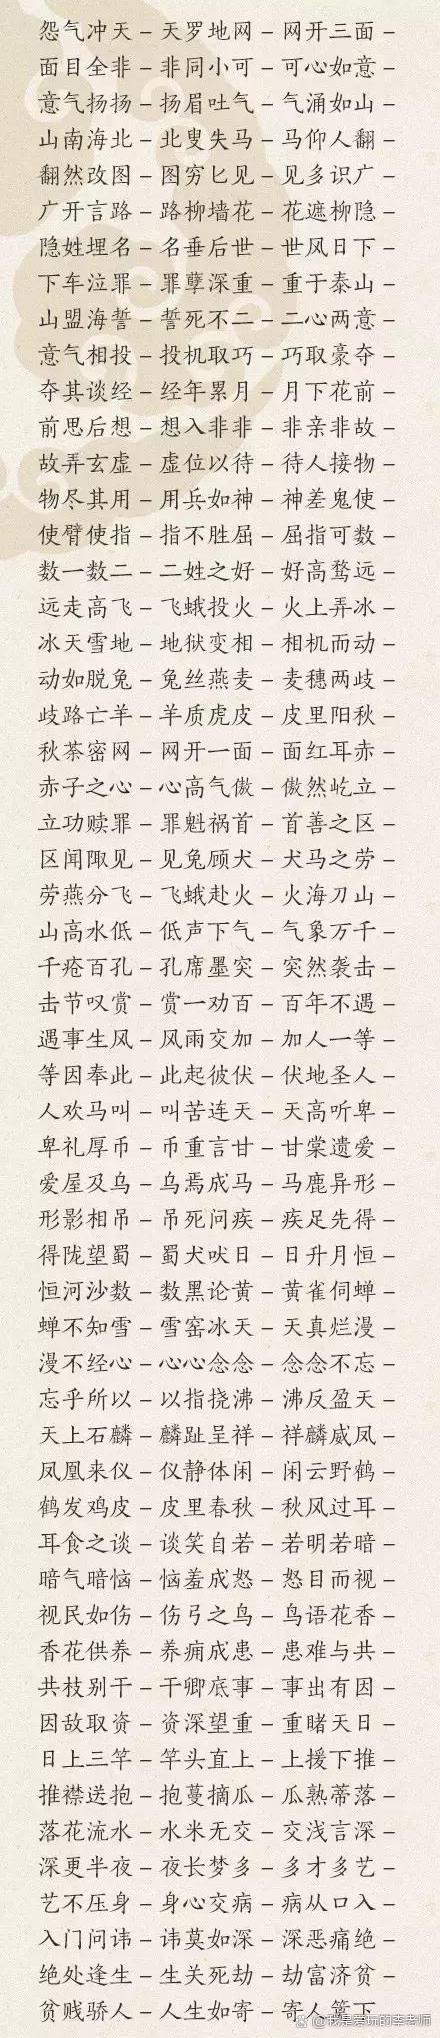 怨气冲天 – 天罗地网 – 网开三面 –
面目全非 – 非同小可 – 可心如意 –
意气扬扬 – 扬眉吐气 – 气涌如山 –
山南海北 – 北叟失马 – 马仰人翻 –
翻然改图 – 图穷匕见 – 见多识广 –
广开言路 – 路柳墙花 – 花遮柳隐 –
隐姓埋名 – 名垂后世 – 世风日下 –
下车泣罪 – 罪孽深重 – 重于泰山 –
山盟海誓 – 誓死不二 – 二心两意 –
意气相投 – 投机取巧 – 巧取豪夺 –
夺其谈经 – 经年累月 – 月下花前 –
前思后想 – 想入非非 – 非亲非故 –
故弄玄虚 – 虚位以待 – 待人接物 –
物尽其用 – 用兵如神 – 神差鬼使 –
使臂使指 – 指不胜屈 – 屈指可数 –
数一数二 – 二姓之好 – 好高骛远 –
远走高飞 – 飞蛾投火 – 火上弄冰 –
冰天雪地 – 地狱变相 – 相机而动 –
动如脱兔 – 兔丝燕麦 – 麦穗两歧 –
歧路亡羊 – 羊质虎皮 – 皮里阳秋 –
秋荼密网 – 网开一面 – 面红耳赤 –
赤子之心 – 心高气傲 – 傲然屹立 –
立功赎罪 – 罪魁祸首 – 首善之区 –
区闻陬见 – 见兔顾犬 – 犬马之劳 –
劳燕分飞 – 飞蛾赴火 – 火海刀山 –
山高水低 – 低声下气 – 气象万千 –
千疮百孔 – 孔席墨突 – 突然袭击 –
击节叹赏 – 赏一劝百 – 百年不遇 –
遇事生风 – 风雨交加 – 加人一等 –
等因奉此 – 此起彼伏 – 伏地圣人 –
人欢马叫 – 叫苦连天 – 天高听卑 –
卑礼厚币 – 币重言甘 – 甘棠遗爱 –
爱屋及乌 – 乌焉成马 – 马鹿异形 –
形影相吊 – 吊死问疾 – 疾足先得 –
得陇望蜀 – 蜀犬吠日 – 日升月恒 –
恒河沙数 – 数黑论黄 – 黄雀伺蝉 –
蝉不知雪 – 雪窑冰天 – 天真烂漫 –
漫不经心 – 心心念念 – 念念不忘 –
忘乎所以 – 以指挠沸 – 沸反盈天 –
天上石麟 – 麟趾呈祥 – 祥麟威凤 –
凤凰来仪 – 仪静体闲 – 闲云野鹤 –
鹤发鸡皮 – 皮里春秋 – 秋风过耳 –
耳食之谈 – 谈笑自若 – 若明若暗 –
暗气暗恼 – 恼羞成怒 – 怒目而视 –
视民如伤 – 伤弓之鸟 – 鸟语花香 –
香花供养 – 养痈成患 – 患难与共 –
共枝别干 – 干卿底事 – 事出有因 –
因敌取资 – 资深望重 – 重睹天日 –
日上三竿 – 竿头直上 – 上援下推 –
推襟送抱 – 抱蔓摘瓜 – 瓜熟蒂落 –
落花流水 – 水米无交 – 交浅言深 –
深更半夜 – 夜长梦多 – 多才多艺 –
艺不压身 – 身心交病 – 病从口入 –
入门问讳 – 讳莫如深 – 深恶痛绝 –
绝处逢生 – 生关死劫 – 劫富济贫 –
贫贱骄人 – 人生如寄 – 寄人篱下
@我是爱玩的李老师